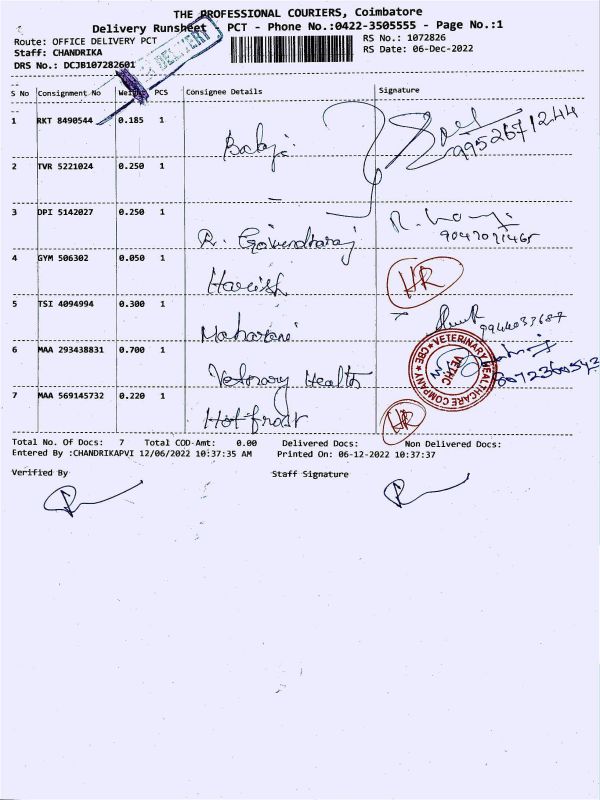 THE PROFESSIONAL COURIERS, Coimbatore
Delivery Runsheet PCT - Phone No.:0422-3505555 - Page No.:1
Route: OFFICE DELIVERY PCT
RS No.: 1072826
Staff: CHANDRIKA
RS Date: 06-Dec-2022
DRS No.: DCJB107282601
DELIVERY
S No Consignment No Weight PCS Consignee Details Signature
1 RKT 8490544 0.185 1 Balaji 9952671244
2 TVR 5221024 0.250 1
3 DPI 5142027 0.250 1 R. Govindharaj 9047071465
4 GYM 506302 0.050 1 Harish HR
5 TSI 4094994 0.300 1 Maharani 9944033687
6 MAA 293438831 0.700 1 Vetenary Health 8072360543
VETERINARY HEALTHCARE COMPANY ★ CBE ★
VETHC
7 MAA 569145732 0.220 1 Hot frost HR
Total No. Of Docs: 7 Total COD-Amt: 0.00 Delivered Docs: Non Delivered Docs:
Entered By :CHANDRIKAPVI 12/06/2022 10:37:35 AM Printed On: 06-12-2022 10:37:37
Verified By Staff Signature